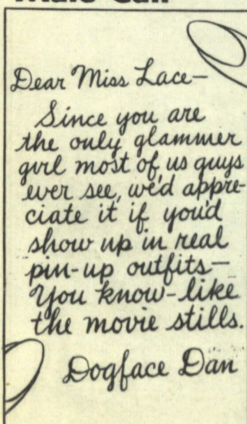 Dear Miss Lace—
Since you are
the only glammer
girl most of us guys
ever see, we'd appre-
ciate it if you'd
show up in real
pin-up outfits—
You know—like
the movie stills.
Dogface Dan